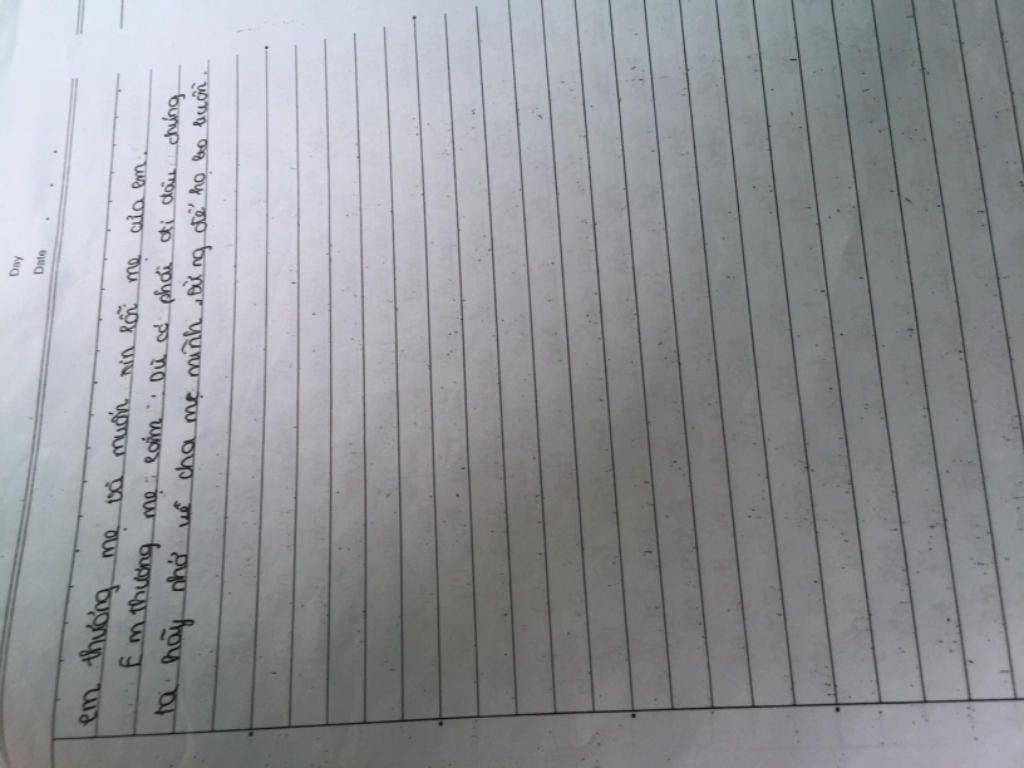 Day
Date
em thương mẹ và muốn xin lỗi mẹ của em
Em thương mẹ lắm, dù có phải đi đâu chúng
ta hãy nhớ về cha mẹ mình, đừng để họ buồn.